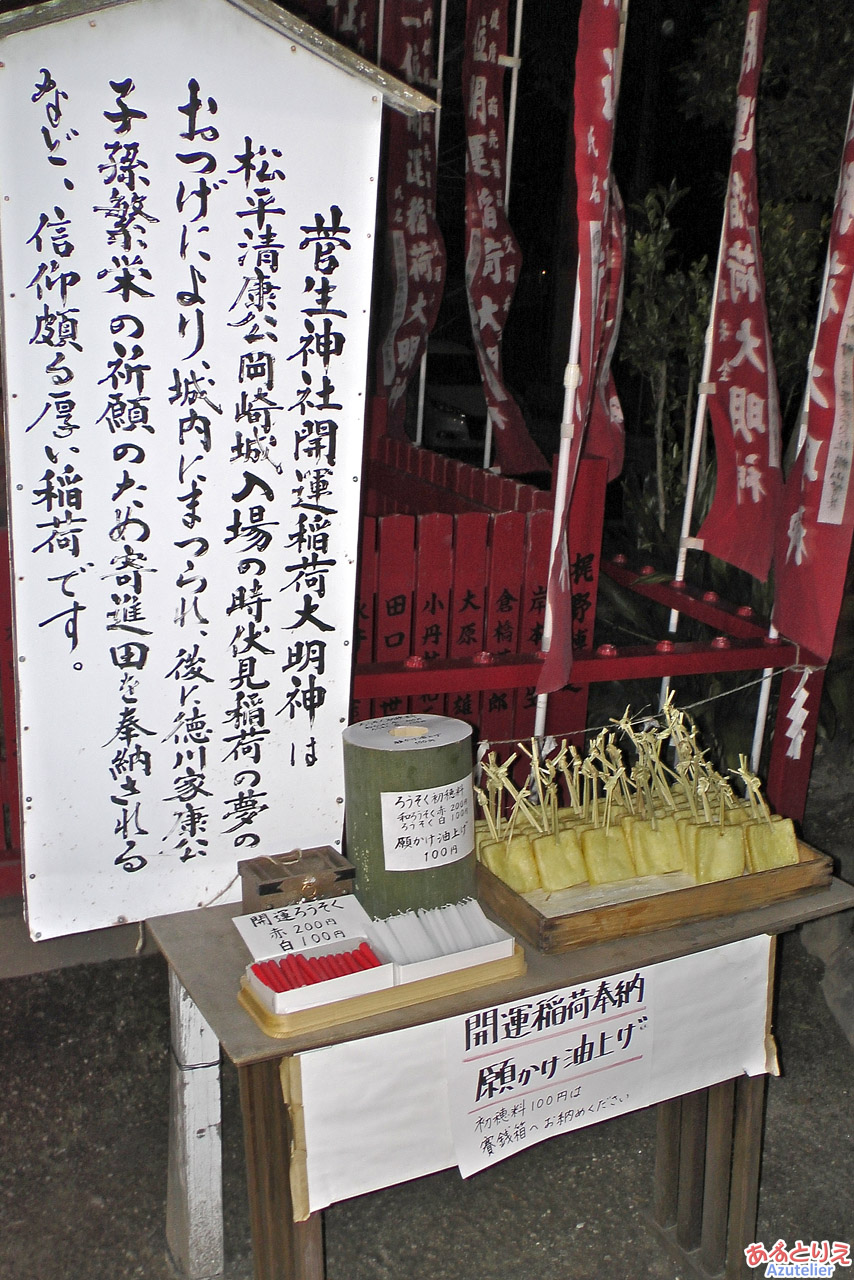 菅生神社開運稲荷大明神は
松平清康公岡崎城入場の時伏見稲荷の夢の
おつげにより、城内にまつられ、後に徳川家康公
子孫繁栄の祈願のため寄進田を奉納される
など、信仰頗る厚い稲荷です。
開運稲荷大明
位開運稲荷大明
運稲荷大明神
田口
小丹
大原
雄
倉橋
郎
岸本
梶野
ろうそく初穂料
和ろうそく赤200円
ろうそく白100円
願かけ油上げ
100円
開運ろうそく
赤200円
白100円
開運稲荷奉納
願かけ油上げ
初穂料100円は
賽銭箱へお納めください
あぶとりえ
Azutelier